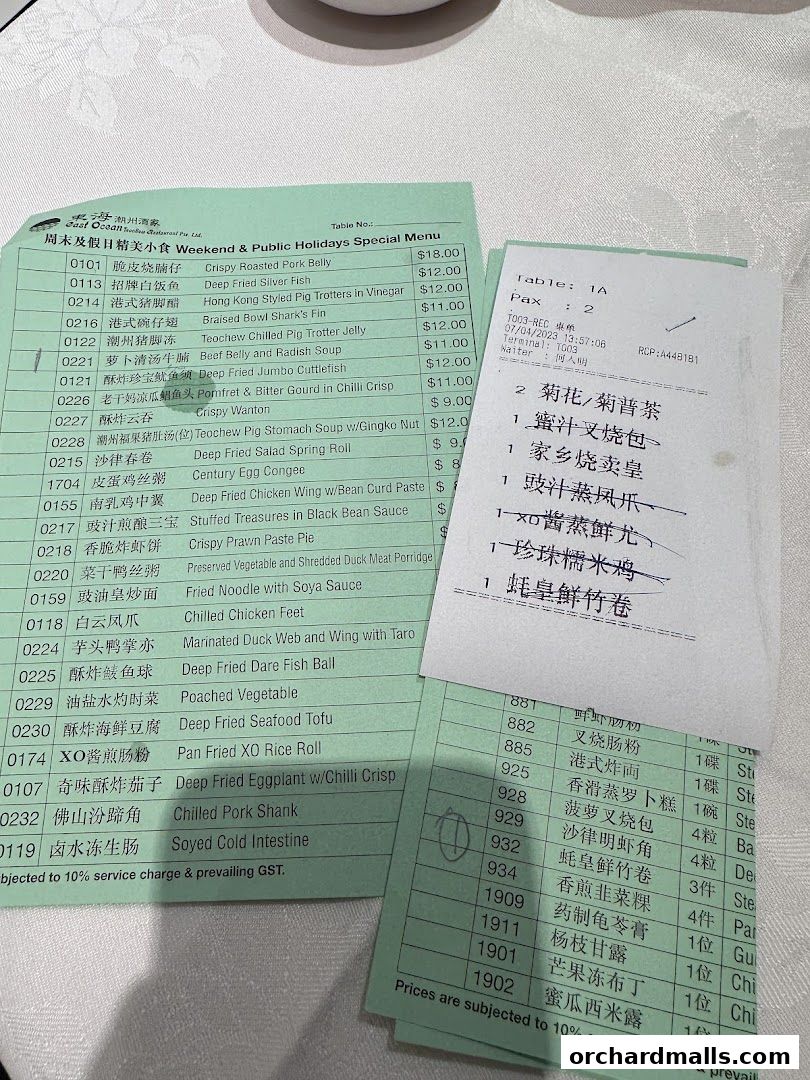 東海 潮州酒家
East Ocean Teochew Restaurant Pte. Ltd.
Table No.:
周末及假日精美小食 Weekend & Public Holidays Special Menu
0101 脆皮烧腩仔 Crispy Roasted Pork Belly $18.00
0113 招牌白饭鱼 Deep Fried Silver Fish $12.00
0214 港式猪脚醋 Hong Kong Styled Pig Trotters in Vinegar $12.00
0216 港式碗仔翅 Braised Bowl Shark's Fin $11.00
0122 潮州猪脚冻 Teochew Chilled Pig Trotter Jelly $12.00
0221 萝卜清汤牛腩 Beef Belly and Radish Soup $11.00
0121 酥炸珍宝鱿鱼须 Deep Fried Jumbo Cuttlefish $12.00
0226 老干妈凉瓜鲳鱼头 Pomfret & Bitter Gourd in Chilli Crisp $11.00
0227 酥炸云吞 Crispy Wanton $ 9.00
0228 潮州福果猪肚汤(位) Teochew Pig Stomach Soup w/Gingko Nut $12.0
0215 沙律春卷 Deep Fried Salad Spring Roll $ 9.
1704 皮蛋鸡丝粥 Century Egg Congee $ 8
0155 南乳鸡中翼 Deep Fried Chicken Wing w/Bean Curd Paste $ 8
0217 豉汁煎酿三宝 Stuffed Treasures in Black Bean Sauce $
0218 香脆炸虾饼 Crispy Prawn Paste Pie $
0220 菜干鸭丝粥 Preserved Vegetable and Shredded Duck Meat Porridge
0159 豉油皇炒面 Fried Noodle with Soya Sauce
0118 白云凤爪 Chilled Chicken Feet
0224 芋头鸭掌亦 Marinated Duck Web and Wing with Taro
0225 酥炸鲮鱼球 Deep Fried Dare Fish Ball
0229 油盐水灼时菜 Poached Vegetable
0230 酥炸海鲜豆腐 Deep Fried Seafood Tofu
0174 XO酱煎肠粉 Pan Fried XO Rice Roll
0107 奇味酥炸茄子 Deep Fried Eggplant w/Chilli Crisp
0232 佛山汾蹄角 Chilled Pork Shank
0119 卤水冻生肠 Soyed Cold Intestine
bjected to 10% service charge & prevailing GST.
Table: 1A
Pax : 2
T003-REC 桌单
07/04/2023 13:57:06
Terminal: T003 RCP:A448181
Waiter :
2 菊花/菊普茶
1 蜜汁叉烧包
1 家乡烧卖皇
1 豉汁蒸凤爪
1 XO酱蒸鲜尤
1 珍珠糯米鸡
1 蚝皇鲜竹卷
881 鲜虾肠粉 1碟 Ste
882 叉烧肠粉 1碟 Ste
885 港式炸两 1碟 Ste
925 香滑蒸罗卜糕 1碗 Ste
928 菠萝叉烧包 4粒 Ba
929 沙律明虾角 4粒 De
932 蚝皇鲜竹卷 3件 Ste
934 香煎韭菜粿 4件 Par
1909 药制龟苓膏 1位 Gu
1911 杨枝甘露 1位 Chi
1901 芒果冻布丁 1位 Chi
1902 蜜瓜西米露 1位
Prices are subjected to 10%
& prevail
orchardmalls.com